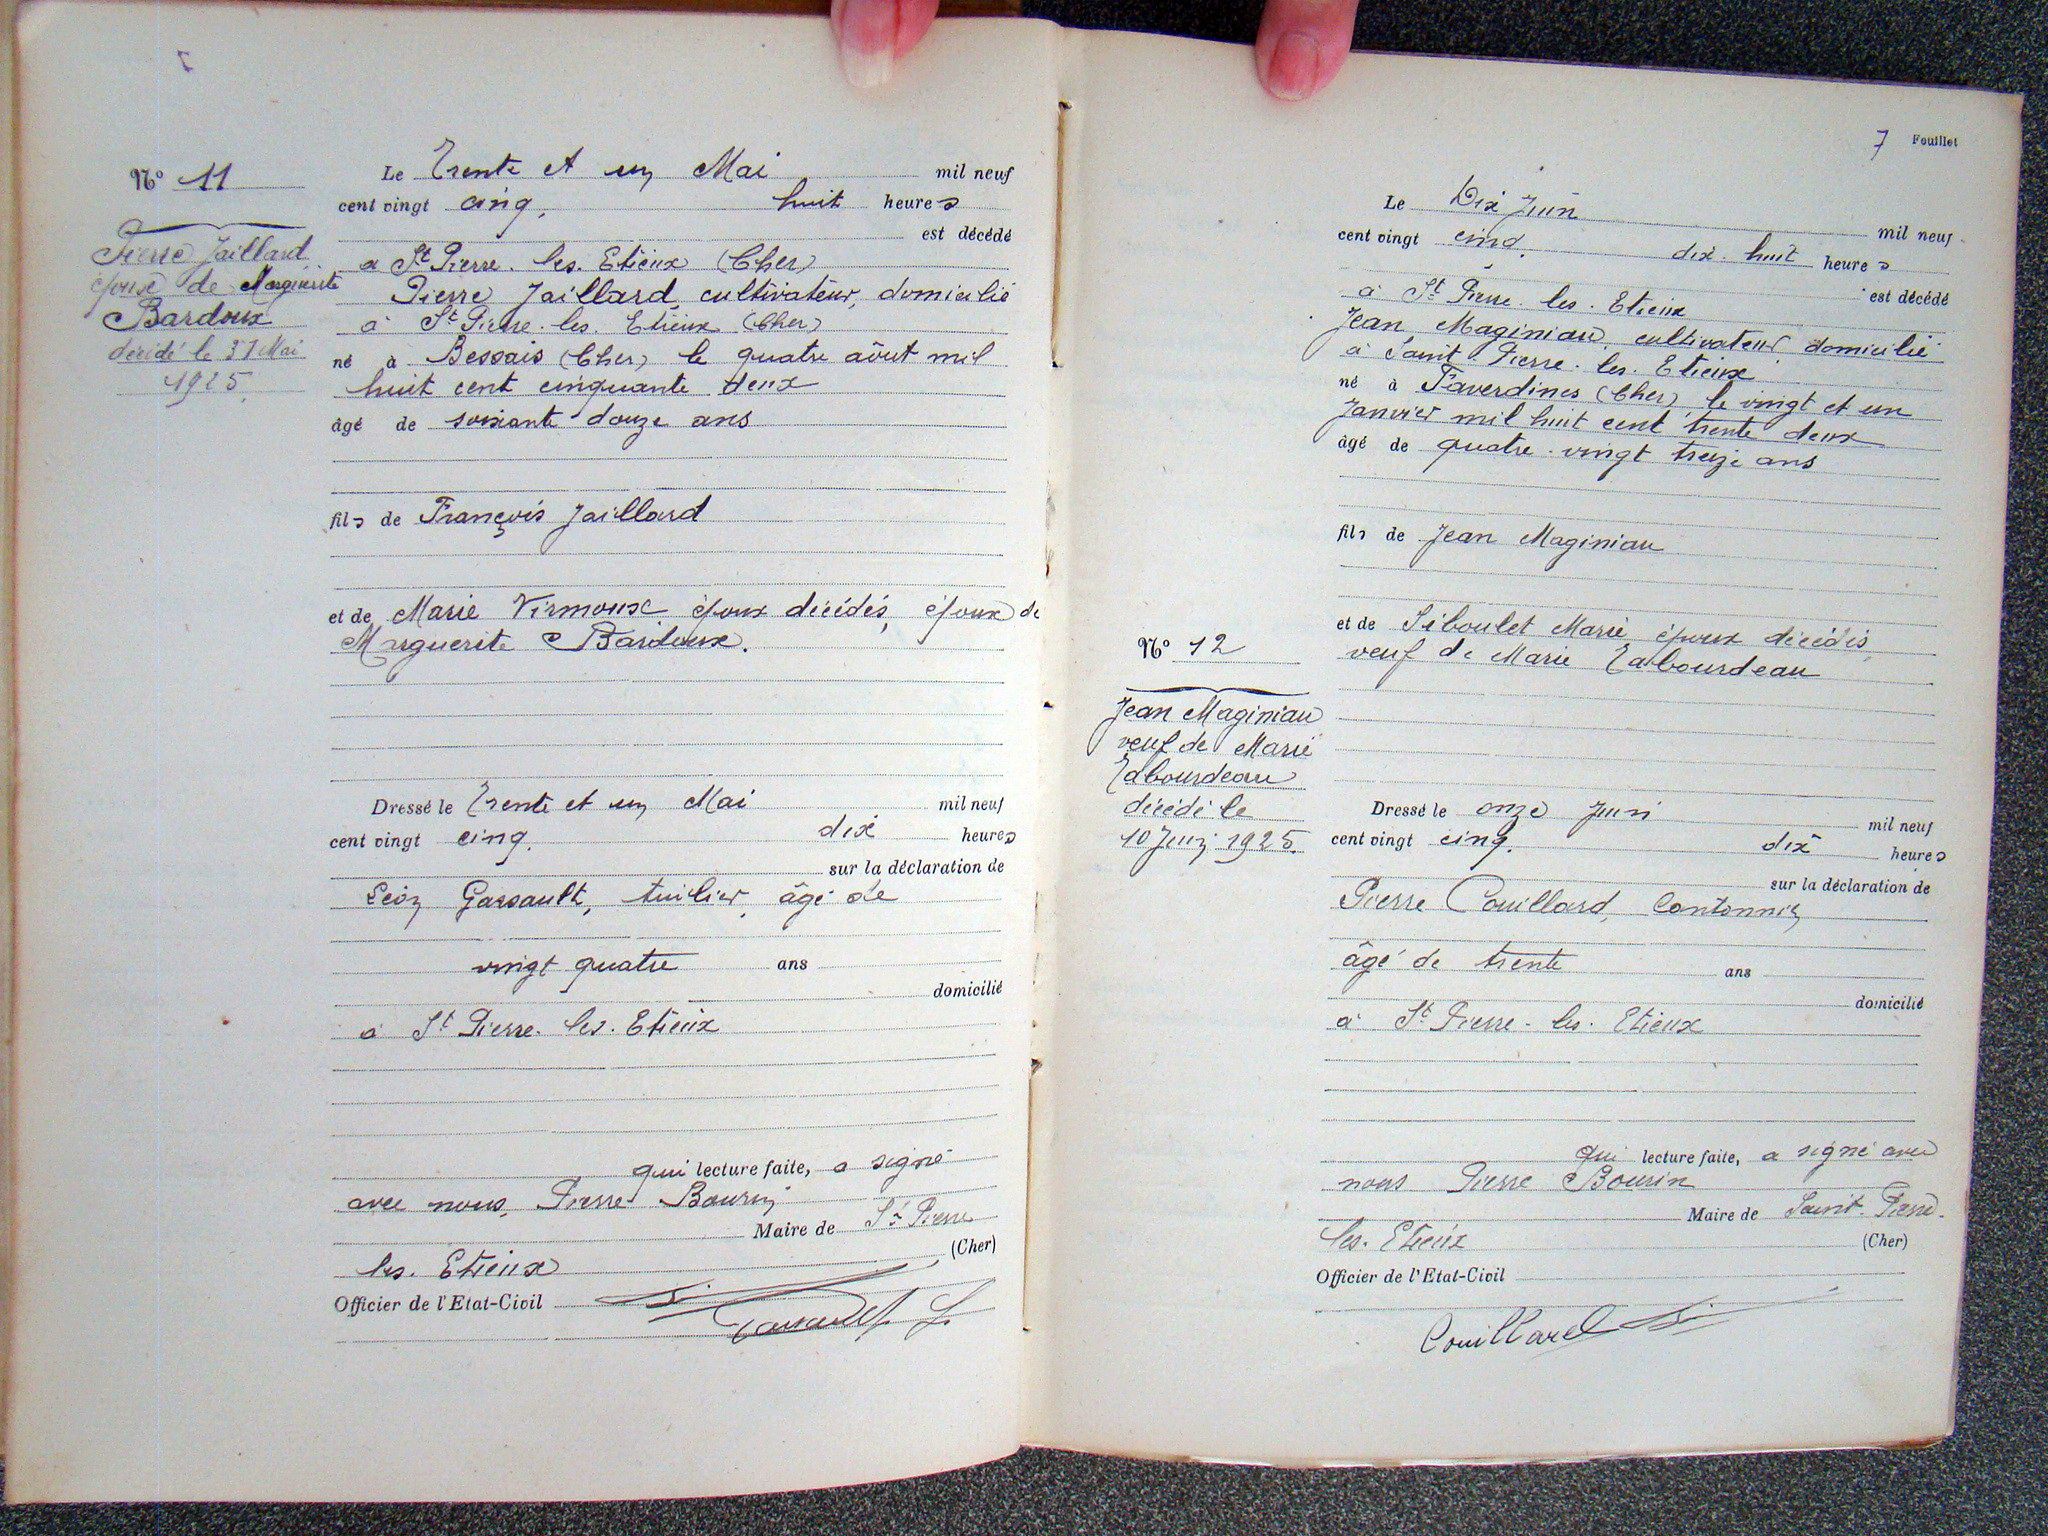 N° 11
Pierre Jaillard
époux de Marguerite
Bardoux
décédé le 31 Mai
1925.
Le Trente et un Mai mil neuf
cent vingt cinq, huit heures
est décédé
à St Pierre. les. Etieux (Cher)
Pierre Jaillard, cultivateur, domicilié
à St Pierre. les. Etieux (Cher)
né à Bessais (Cher) le quatre août mil
huit cent cinquante deux
âgé de soixante douze ans
fils de François Jaillard
et de Marie Virmoux époux décédés, époux de
Marguerite Bardoux.
Dressé le Trente et un Mai mil neuf
cent vingt cinq, dix heures
sur la déclaration de
Léon Gassault, tuilier, âgé de
vingt quatre ans
domicilié
à St Pierre. les. Etieux
qui lecture faite, a signé
avec nous, Pierre Bourin
Maire de St Pierre
les. Etieux (Cher)
Officier de l'Etat-Civil
7 Feuillet
Le Dix Juin mil neuf
cent vingt cinq, dix. huit heures
est décédé
à St Pierre. les. Etieux
Jean Maginiau, cultivateur, domicilié
à Saint Pierre. les. Etieux
né à Faverdines (Cher) le vingt et un
Janvier mil huit cent trente deux
âgé de quatre. vingt treize ans
fils de Jean Maginiau
et de Siboulet Marie époux décédés,
veuf de Marie Tabourdeau
N° 12
Jean Maginiau
veuf de Marie
Tabourdeau
décédé le
10 Juin 1925.
Dressé le onze Juin mil neuf
cent vingt cinq, dix heures
sur la déclaration de
Pierre Couillard, Cantonnier
âgé de trente ans
domicilié
à St Pierre. les. Etieux
qui lecture faite, a signé avec
nous Pierre Bourin
Maire de Saint. Pierre.
les. Etieux (Cher)
Officier de l'Etat-Civil
Couillard